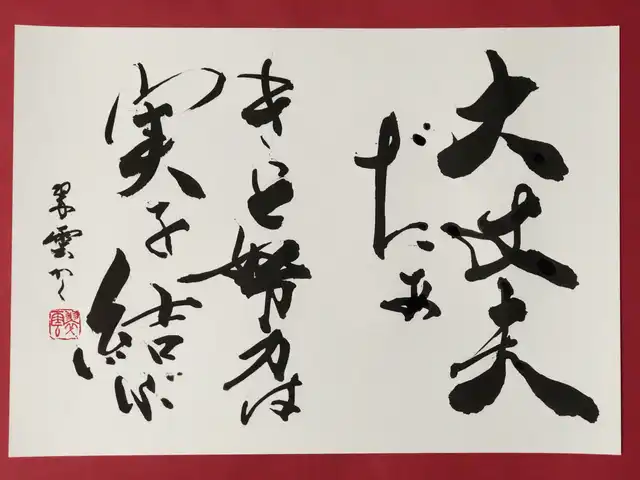 大丈夫
だぁ
きっと努力は
実を結ぶ
翠雲かく